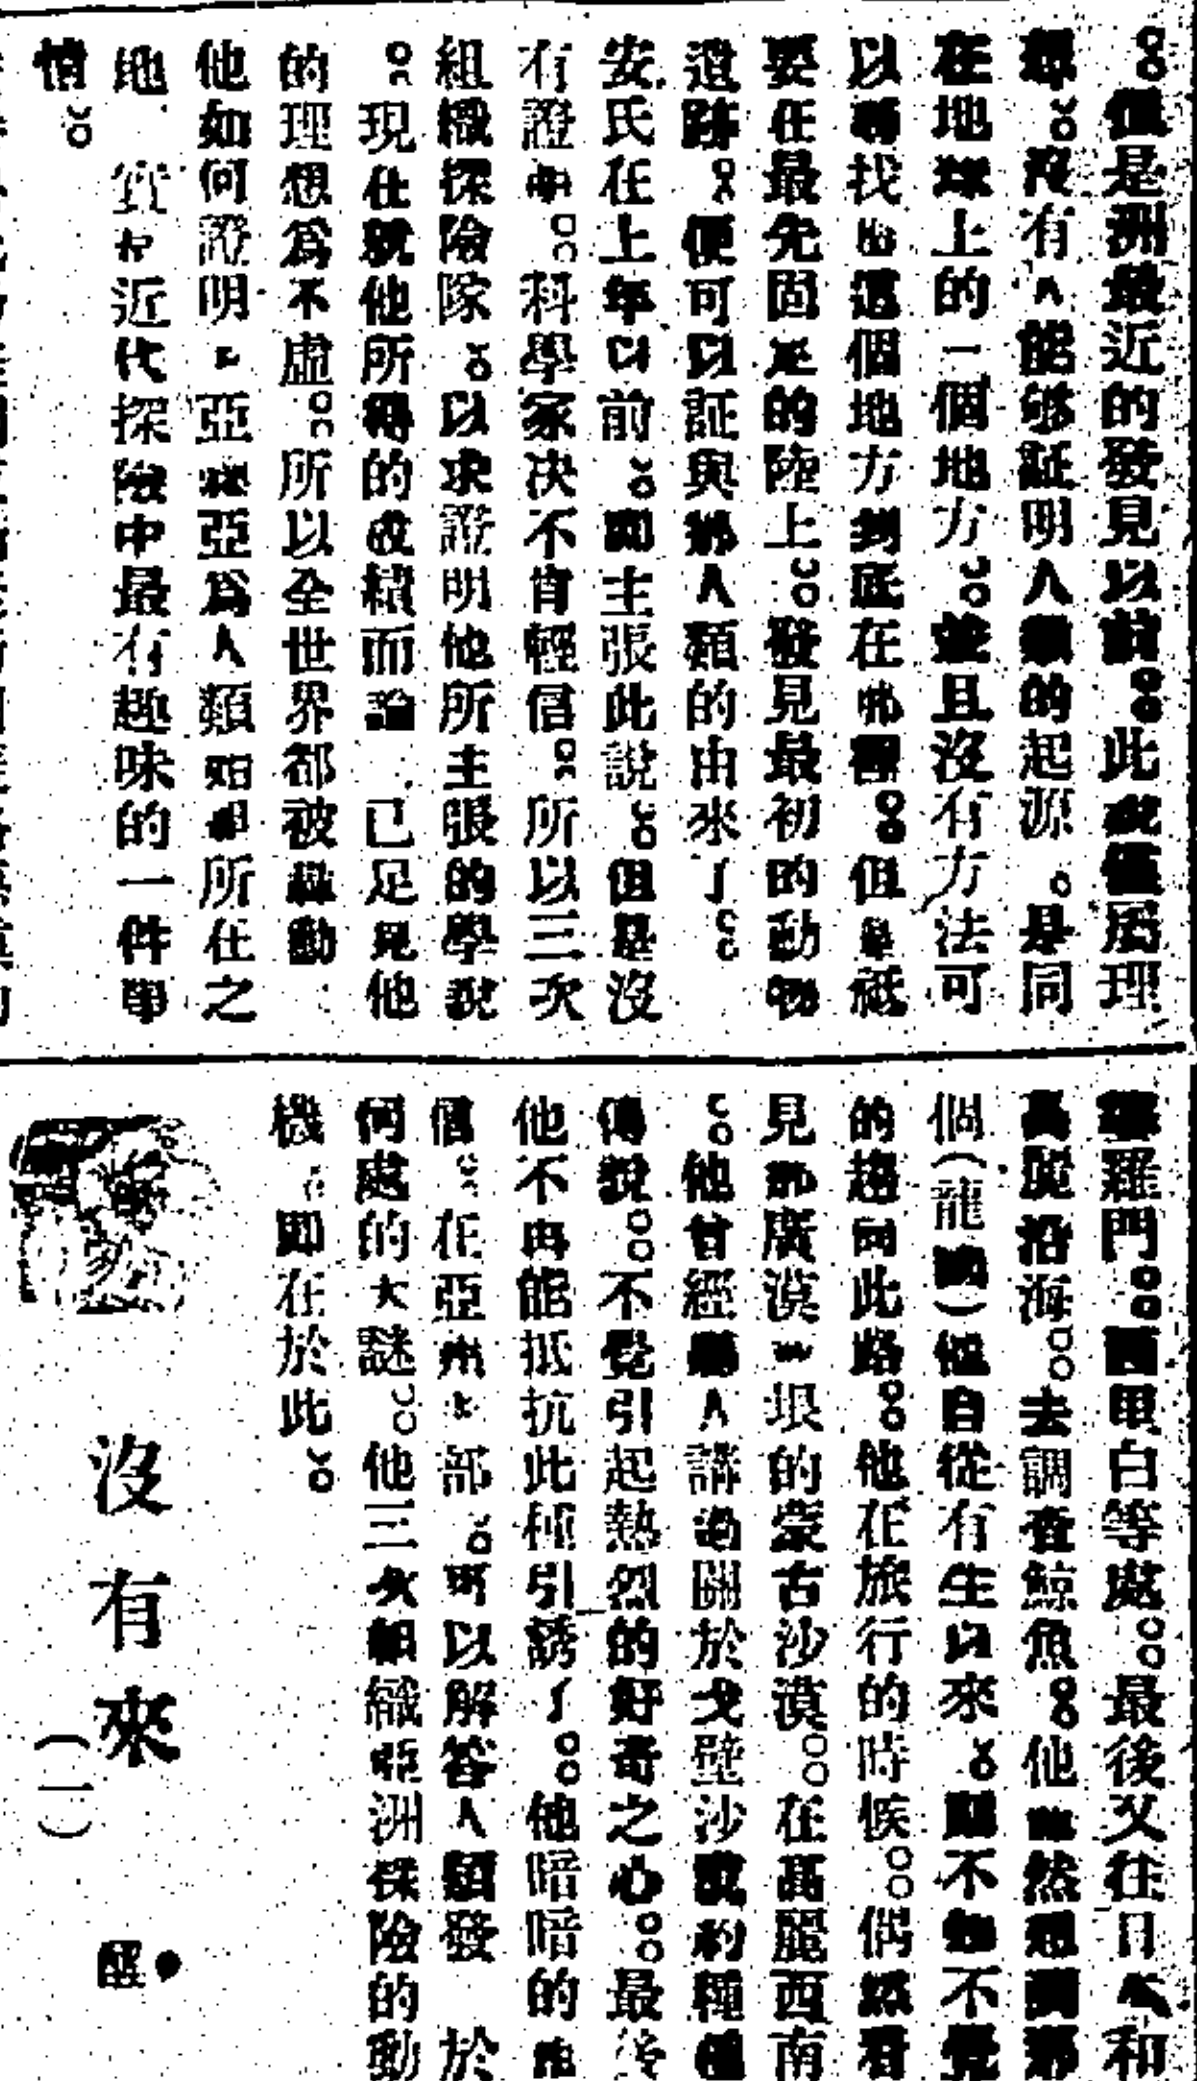 。但是洲最近的發見以前。此說僅屬理
想。沒有人能够証明人類的起源。是同
在地球上的一個地方。並且沒有方法可
以尋找出這個地方到底在那裡。但是祇
要在最先固定的陸上。發見最初的動物
遺跡。便可以証與那人類的由來了。
安氏在上年以前。卽主張此說。但是沒
有證明。科學家决不肯輕信。所以三次
組織探險隊。以求證明他所主張的學說
。現在就他所得的成績而論 已足見他
的理想爲不虛。所以全世界都被轟動
他如何證明 亞亞爲人類始 所在之
地 實 近代探險中最有趣味的一件事
情。
羅門。西里白等處。最後又往日本和
高麗沿海。去調查鯨魚。他然想
個(龍)他自從有生以來。不知不覺
的趨向此路。他在旅行的時候。偶然看
見廣漠 垠的蒙古沙漠。在高麗西南
。他曾經人講過關於戈壁沙漠的種種
傳說。不覺引起熱烈的好奇之心。最後
他不再能抵抗此種引誘了。他暗暗的
信。在亞洲 部。可以解答人類發 於
何處的大謎。他三次組織亞洲探險的動
機。卽在於此。
沒有來(一)
醒